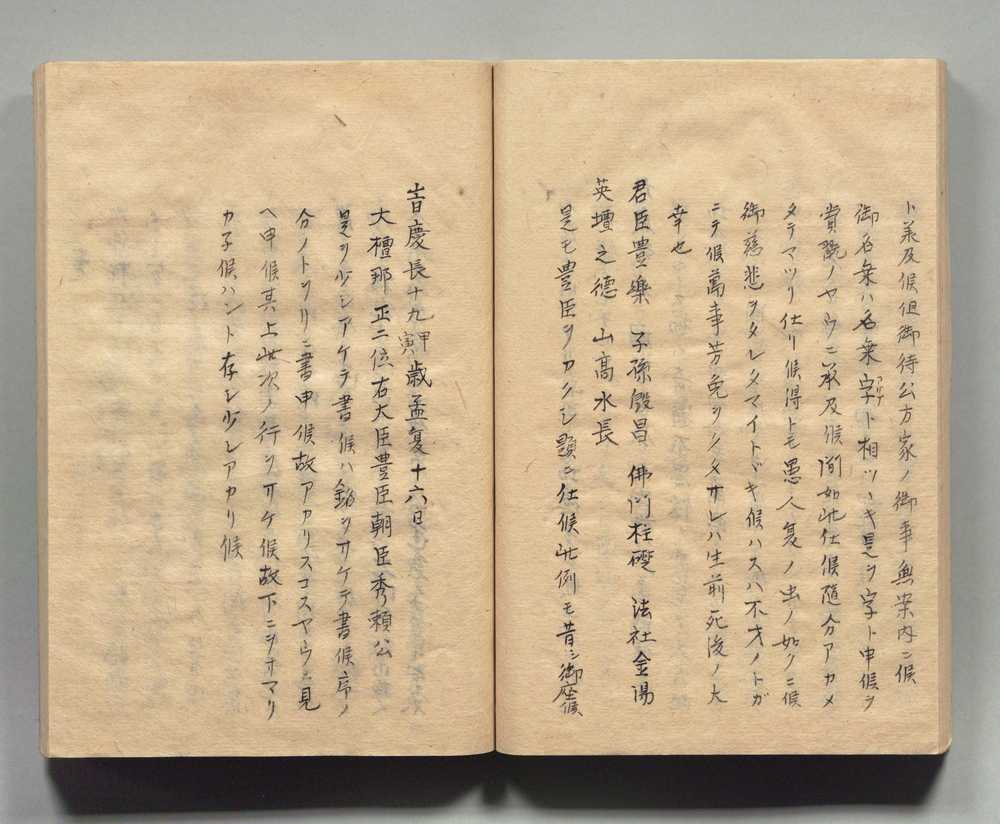 ト承及候但御侍公方家ノ御事無案内ニ候
御名乗ハ名乗字ト相ツヽキ是ヲ字ト申候ヲ
賞翫ノヤウニ承及候間如此仕候随分アカメ
タテマツリ仕リ候得トモ愚人夏ノ虫ノ如クニ候
御慈悲ヲタレタマイトヾキ候ハスハ不才ノトガ
ニテ候萬事芳免ヲクタサレハ生前死後ノ大
幸也
君臣豊樂 子孫殷昌 佛門柱礎 法社金湯
英壇之德 山高水長
是モ豊臣ヲカクシ題ニ仕候此例モ昔シ御座候
旹慶長十九甲寅歳孟夏十六日
大檀那正二位右大臣豊臣朝臣秀頼公
是ヲ少シアケテ書候ハ銘ヲサケテ書候序ノ
分ノトヲリニ書申候故アカリスコスヤウニ見
ヘ申候其上此次ノ行ヲサケ候故下ニヲサマリ
カ子候ハント存シ少シアカリ候